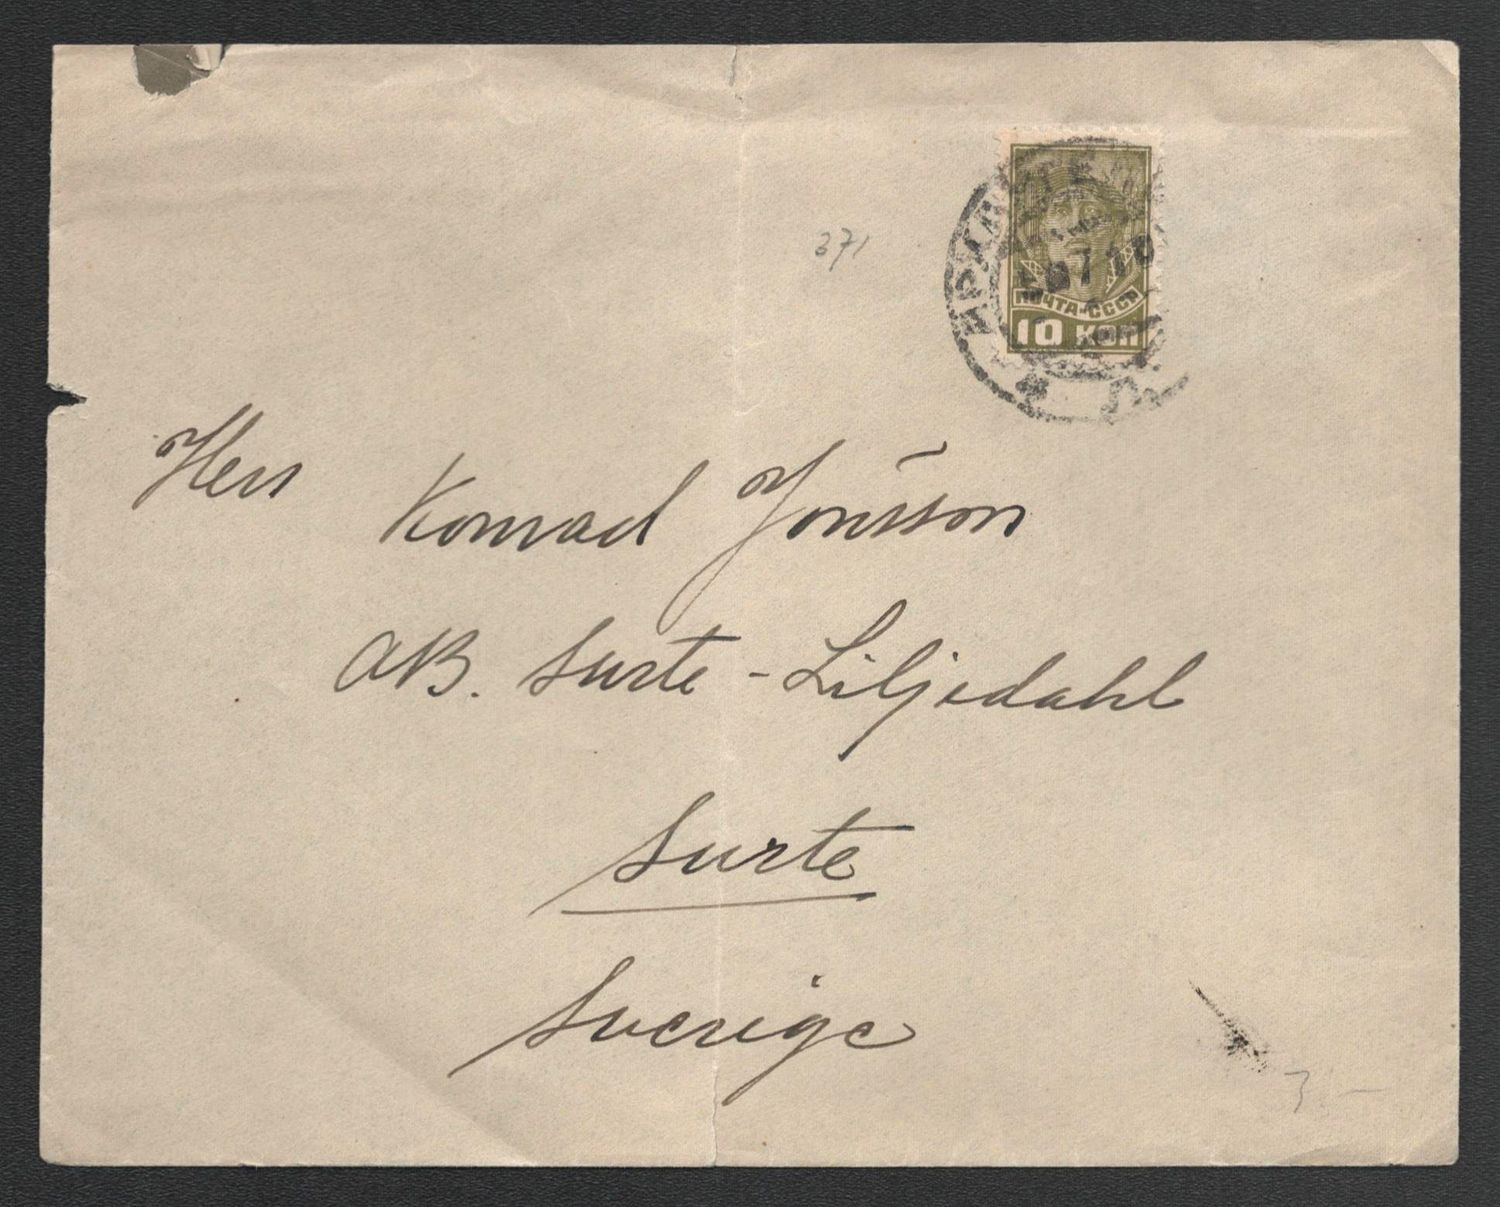 371
ПОЧТА-СССР
10 КОП
Herr
Konrad Jonsson
AB. Surte - Liljedahl
Surte
Sverige